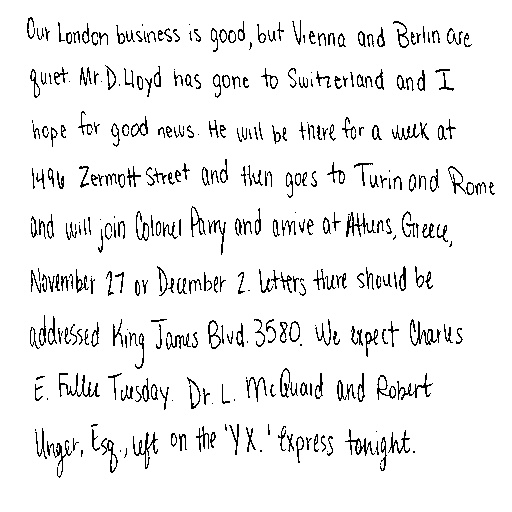 Our London business is good, but Vienna and Berlin are
quiet. Mr. D. Lloyd has gone to Switzerland and I
hope for good news. He will be there for a week at
1496 Zermott Street and then goes to Turin and Rome
and will join Colonel Parry and arrive at Athens, Greece,
November 27 or December 2. Letters there should be
addressed King James Blvd. 3580. We expect Charles
E. Fuller Tuesday. Dr. L. McQuaid and Robert
Unger, Esq., left on the 'Y X.' Express tonight.